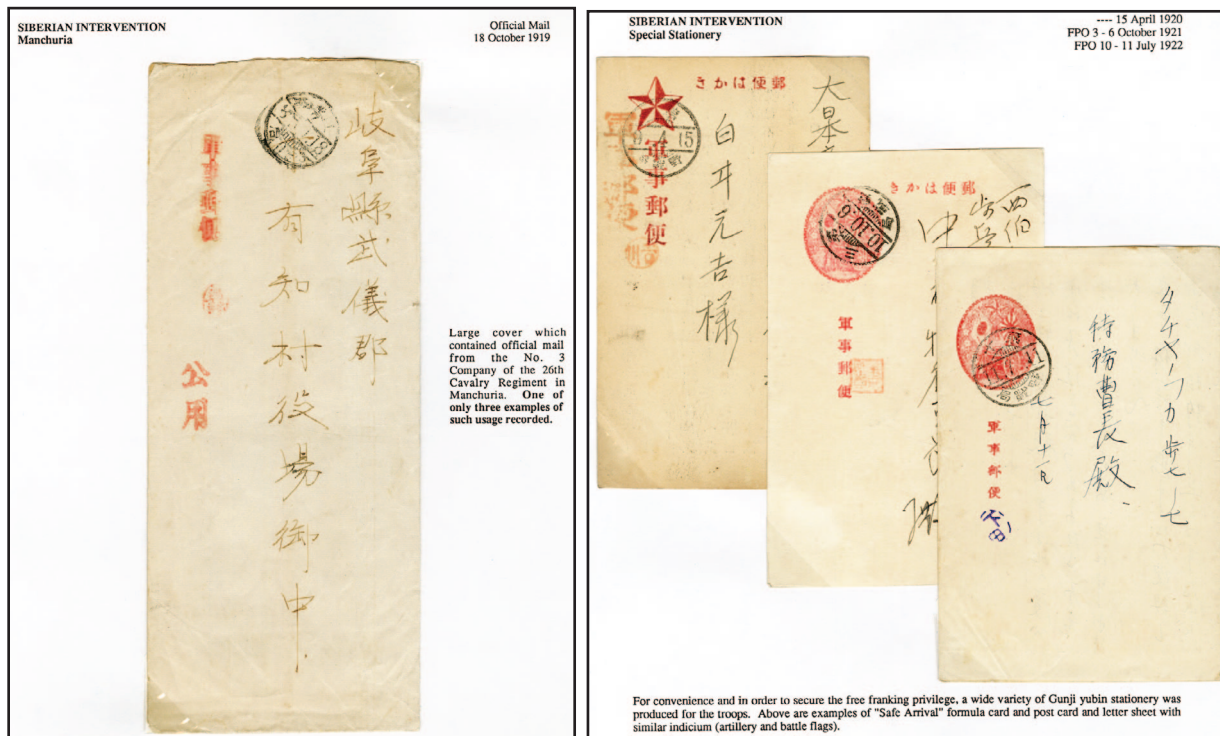 SIBERIAN INTERVENTION
Manchuria
Official Mail
18 October 1919
岐阜縣武儀郡
有知村役場御中
軍事郵便
公用
Large cover which
contained official mail
from the No. 3
Company of the 26th
Cavalry Regiment in
Manchuria. One of
only three examples of
such usage recorded.
SIBERIAN INTERVENTION
Special Stationery
---- 15 April 1920
FPO 3 - 6 October 1921
FPO 10 - 11 July 1922
郵便はかき
大日本
白井元吉様
軍事郵便
9.4.15
郵便はかき
西伯
10.10.6
軍事郵便
特務曹長殿
七月十一日
軍事郵便
For convenience and in order to secure the free franking privilege, a wide variety of Gunji yubin stationery was
produced for the troops. Above are examples of "Safe Arrival" formula card and post card and letter sheet with
similar indicium (artillery and battle flags).